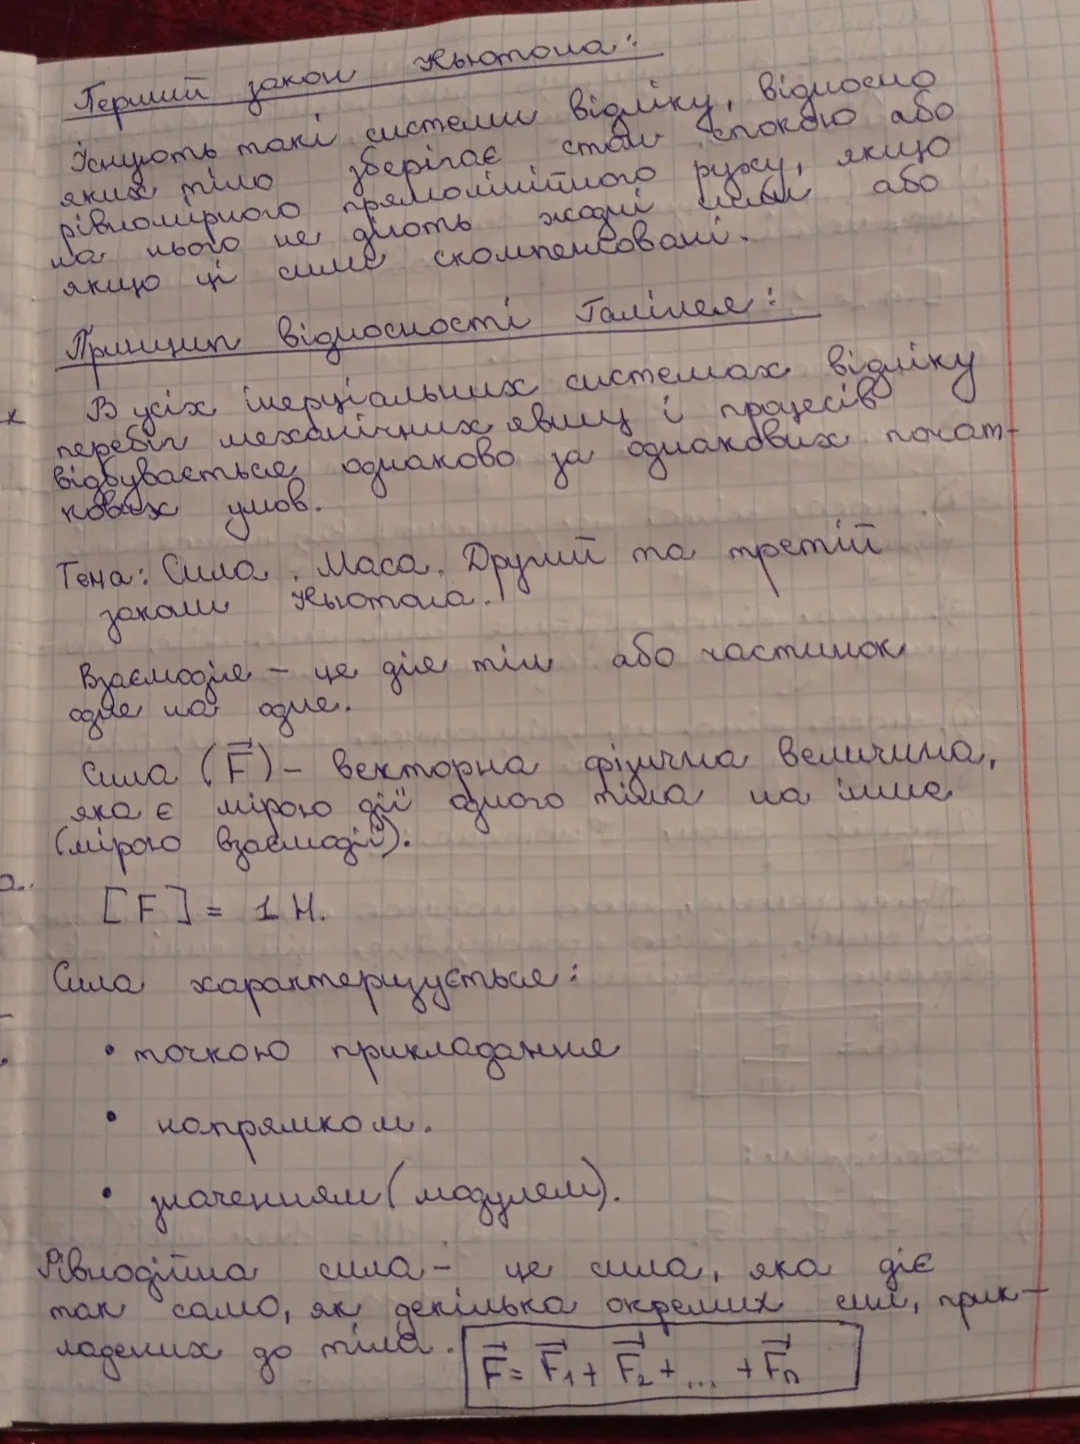 Перший закон Ньютона:
Існують такі системи відліку, відносно
яких тіло зберігає стан спокою або
рівномірного прямолінійного руху, якщо
на нього не діють жодні сили або
якщо ці сили скомпенсовані.
Принцип відносності Галілея:
В усіх інерціальних системах відліку
перебіг механічних явищ і процесів
відбувається однаково за однакових почат-
кових умов.
Тема: Сила. Маса. Другий та третій
закони Ньютона.
Взаємодія – це дія тіл або частинок
одне на одне.
Сила (F⃗) – векторна фізична величина,
яка є мірою дії одного тіла на інше
(мірою взаємодії).
[F] = 1 Н.
Сила характеризується:
• точкою прикладання
• напрямком.
• значенням (модулем).
Рівнодійна сила – це сила, яка діє
так само, як декілька окремих сил, прик-
ладених до тіла.
F⃗ = F⃗₁ + F⃗₂ + ... + F⃗ₙ